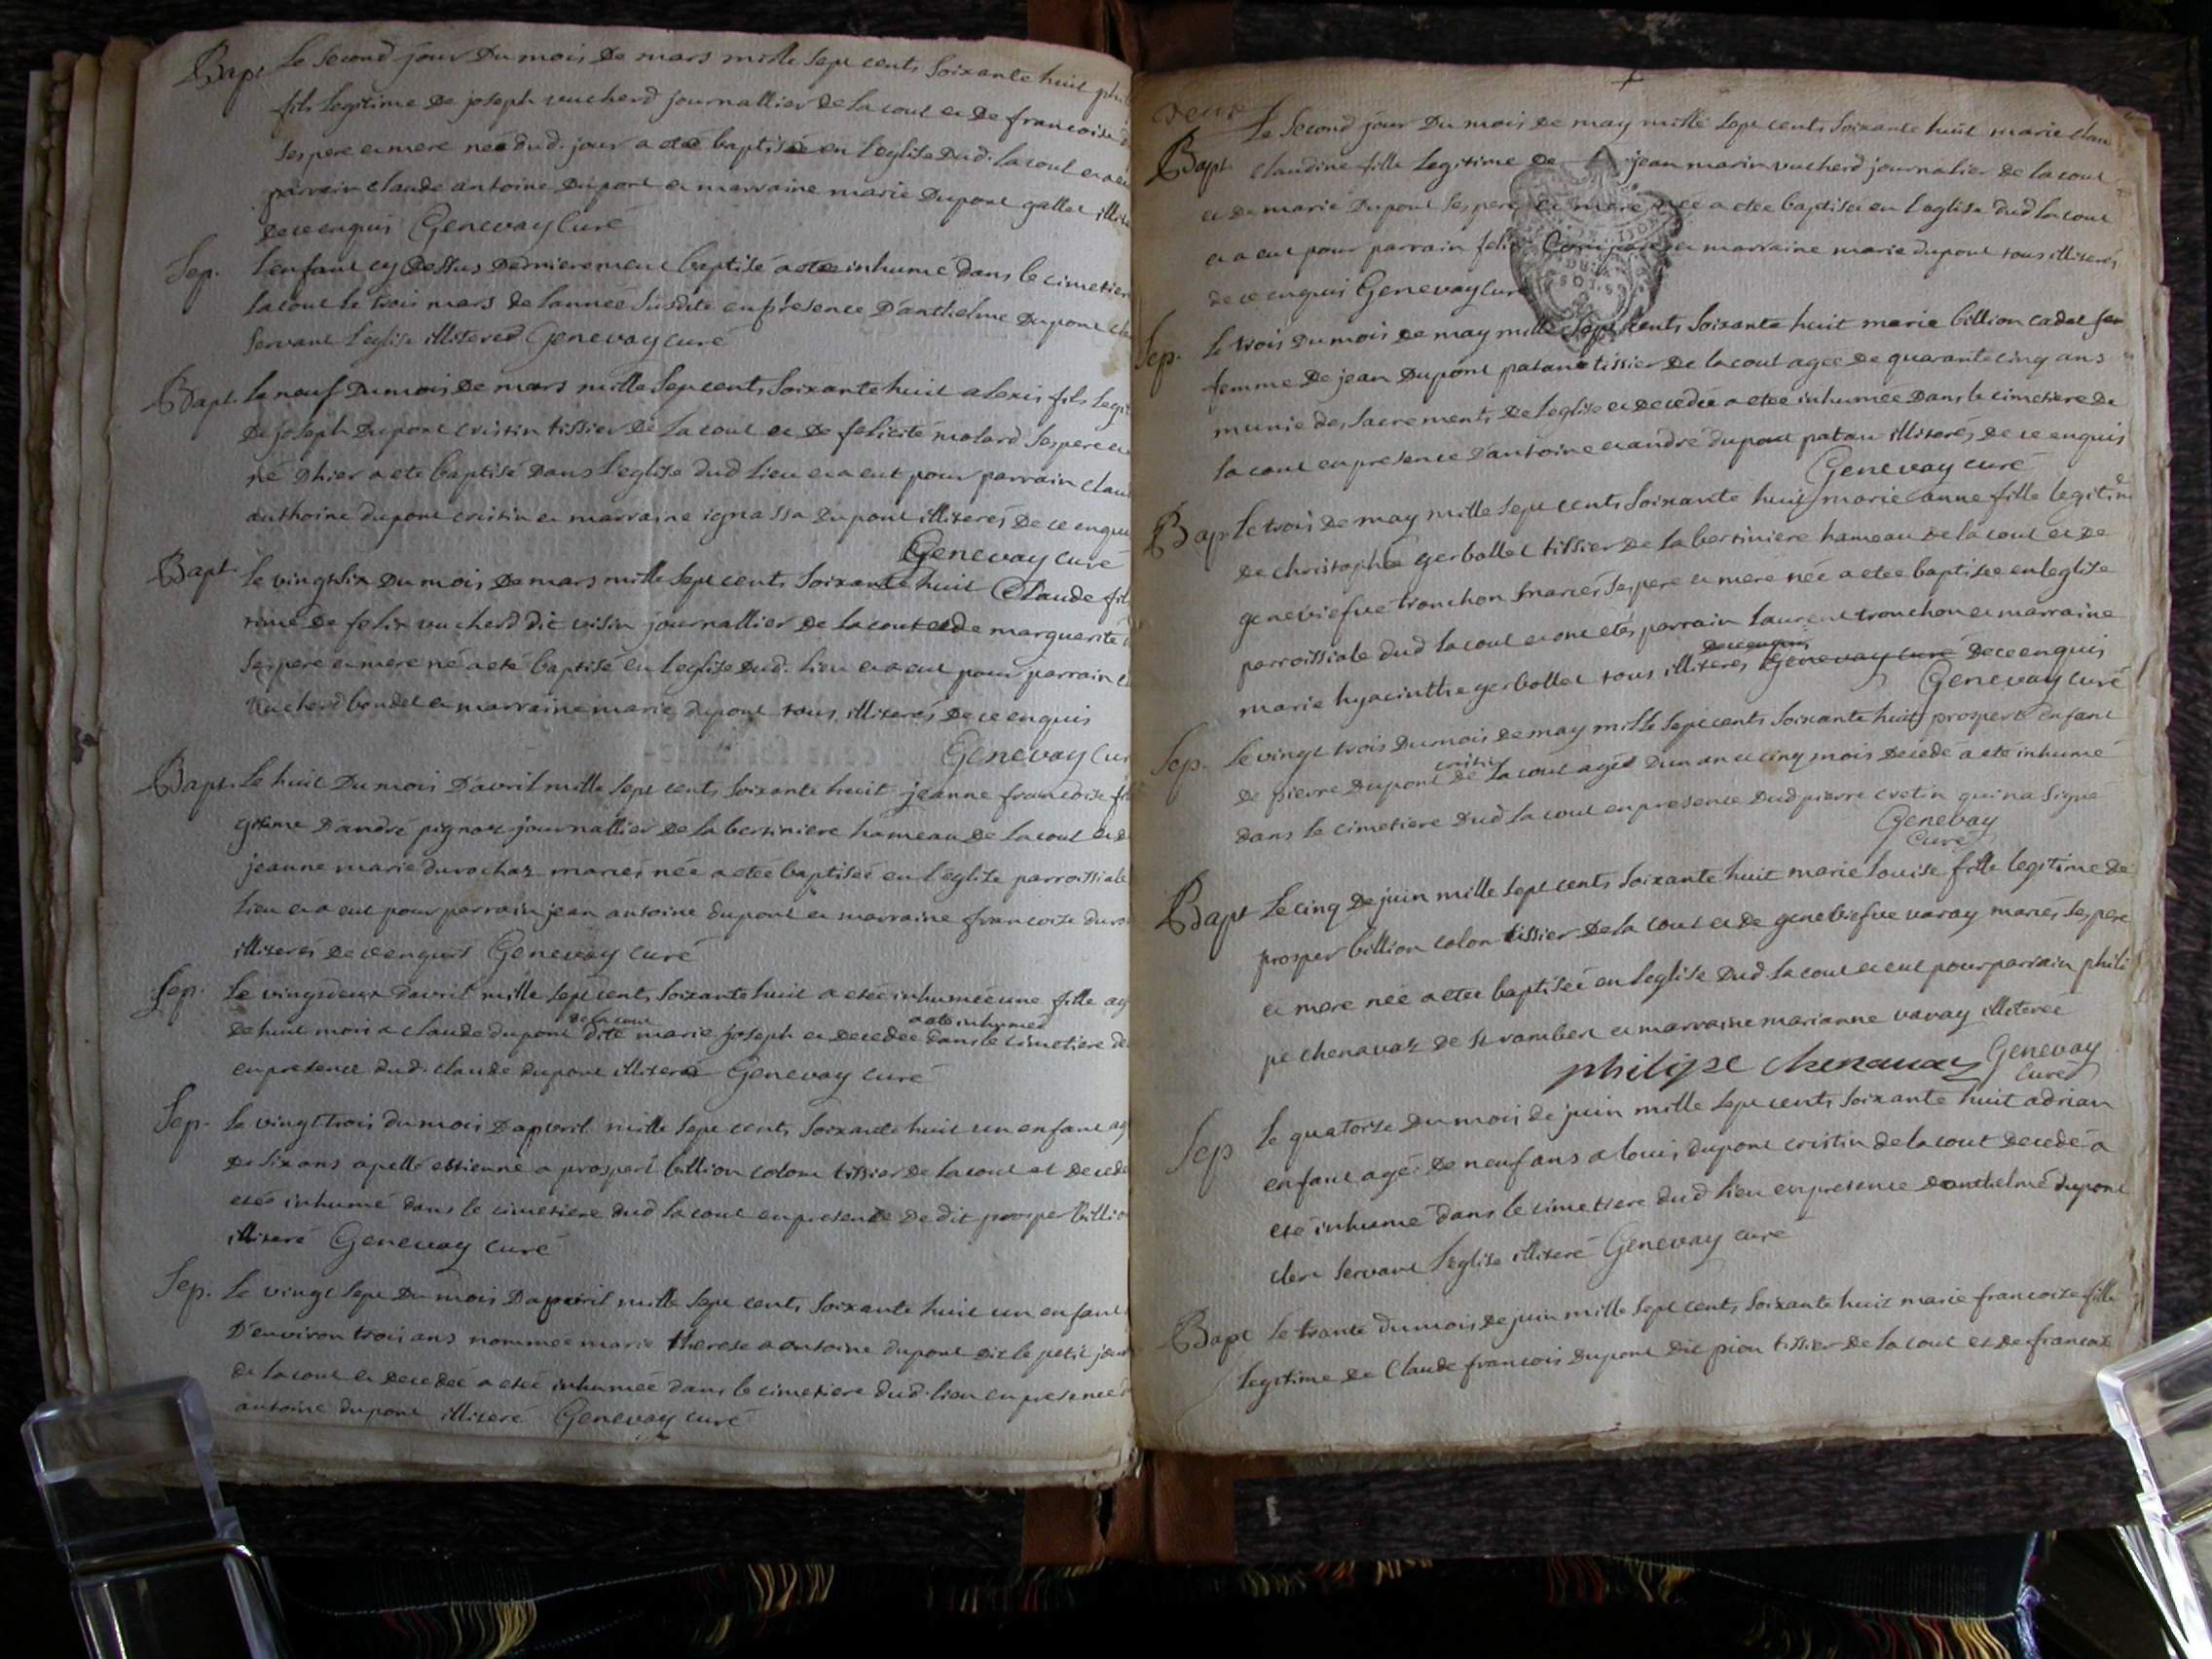 Bapt Le second jour Du mois De mars mille sept cents soixante huit
fils legitime De joseph vucherd journallier de Lacout et De francoise
ses pere et mere né dud. jour a eté baptisé en l'eglise Dud. Lacout et a eu
parrain claude antoine Dupont et marraine marie Dupont gallet
De ce enquis Genevay Curé
Sep. L'enfant cy Dessus Dernierement baptisé a eté inhumé dans le cimetier
Lacout le trois mars de l'année susdite en presence D'anthelme Dupont
servant l'eglise illiteré Genevay curé
Bapt. Le neuf Du mois De mars mille sept cents soixante huit alexis fils legi
De joseph Dupont cristin tissier De Lacout et De felicité molard ses pere et
né D'hier a eté baptisé Dans l'eglise dud lieu et a eut pour parrain clau
anthoine dupont cristin et marraine ignassa Dupont illiterés De ce enqui
Genevay curé
Bapt. Le vingt six Du mois De mars mille sept cents soixante huit Claude fil
time De felix vucherd dit voisin journallier De Lacout et de marguerite
ses pere et mere né a eté baptisé en l'eglise Dud. lieu et a eut pour parrain
vucherd boudet et marraine marie dupont tous illiterés De ce enquis
Genevay Cur
Bapt. Le huit Du mois D'avril mille sept cents soixante huit jeanne francoise
gitime D'andré pignaz journallier De la bertiniere hameau De Lacout et
jeanne marie durochaz mariés née a eteé baptiseé en l'eglise parroissiale
lieu et a eut pour parrain jean antoine dupont et marraine francoise
illiterés De ce enquis Genevay Curé
Sep. Le vingt deux d'avril mille sept cents soixante huit a eteé inhumée une fille ag
de la cout a eté inhumeé
De huit mois a claude dupont dite marie joseph et Decedeé dans le cimetiere de
en presence dud. claude dupont illiteré Genevay Curé
Sep. Le vingt trois du mois D'apvril mille sept cents soixante huit un enfant ag
De six ans apellé estienne a prosper billion colon tissier De Lacout et Decede
eté inhumé dans le cimetiere dud Lacout en presence De dit prosper billio
illiteré Genevay Curé
Sep. Le vingt sept Du mois D'apvril mille sept cents soixante huit un enfant
D'environ trois ans nommeé marie therese a antoine dupont Dit le petit
de Lacout et Decedeé a eteé inhumeé dans le cimetiere dud. lieu en presence
antoine dupont illiteré Genevay curé
Deux
Le second jour Du mois De may mille sept cents soixante huit marie clau
Bapt. claudine fille legitime de jean marin vucherd journalier de Lacout
et De marie Dupont ses pere et mere née a eteé baptisée en l'eglise dud Lacout
et a eut pour parrain et marraine marie dupont tous illiterés
de ce enquis Genevay Curé
Sep. Le trois Du mois De may mille sept cents soixante huit marie billion cadet
femme De jean Dupont patan tissier De Lacout ageé De quarante cinq ans
munie des sacrements De l'eglise et Decedeé a eteé inhumée Dans le cimetiere De
Lacout en presence D'antoine et andré dupont patan illiterés De ce enquis
Genevay curé
Bapt Le trois De may mille sept cents soixante huit marie anne fille legitime
De christophe gerbollet tissier De la bertiniere hameau De Lacout et De
geneviefve tronchon mariés ses pere et mere née a eteé baptisée en l'eglise
parroissiale dud Lacout et ont etés parrain laurent tronchon et marraine
De ce enquis
marie hyacinthe gerbollet tous illiterés Genevay curé De ce enquis
Genevay Curé
Sep. Le vingt trois Du mois De may mille sept cents soixante huit prospert enfant
cristin
De pierre Dupont De Lacout agé D'un an et cinq mois Decedé a eté inhumé
dans le cimetiere Dud Lacout en presence Dud pierre cretin qui n'a signé
Genevay
Curé
Bapt Le cinq De juin mille sept cents soixante huit marie louise fille legitime de
prosper billion colon tissier De la cout et de geneviefve varay mariés ses pere
et mere née a eteé baptiseé en l'eglise Dud Lacout et eut pour parrain phili
pe chenavaz De st rambert et marraine marianne varay illitereé
philipe chenavaz Genevay
Curé
Sep Le quatorze Du mois de juin mille sept cents soixante huit adrian
enfant agé De neuf ans a louis dupont cristin de Lacout Decedé a
eté inhumé dans le cimetiere dud lieu en presence D'anthelme dupont
clerc servant l'eglise illiteré Genevay Curé
Bapt Le trante du mois De juin mille sept cents soixante huit marie francoise fille
legitime De Claude francois Dupont Dit pion tissier De Lacout et De francoise